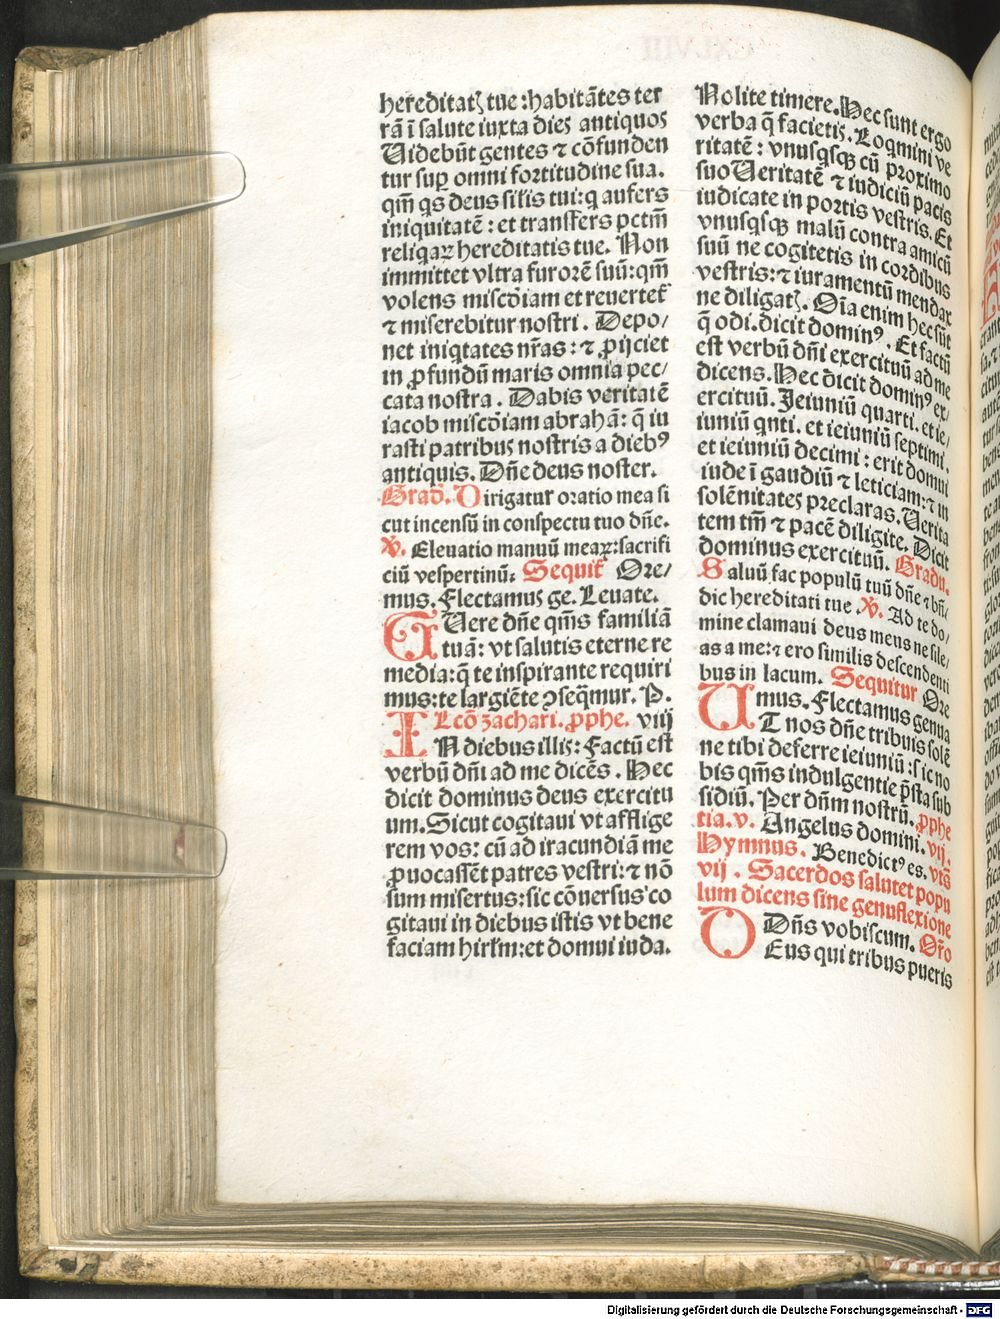 hereditatꝫ tue : habitātes ter
rā ī salute iuxta dies antiquos
Uidebūt gentes ⁊ cōfunden
tur suꝑ omni fortitudine sua.
qm̄ qs deus silis tui: q aufers
iniquitatē : et transfers pctm̄
reliqaꝝ hereditatis tue. Non
immittet vltra furorē suū: qm̄
volens miscōiam et reuertet᷑
⁊ miserebitur nostri. Depo/
net iniqtates nr̄as : ⁊ ꝓijciet
in ꝓfundū maris omnia pec/
cata nostra. Dabis veritatē
iacob miscōiam abrahā: q̄ iu
rasti patribus nostris a diebꝰ
antiquis. Dn̄e deus noster.
Grad̄. Dirigatur oratio mea si
cut incensū in conspectu tuo dn̄e.
℣. Eleuatio manuū meaꝝ: sacrifi
ciū vespertinū. Sequit᷑ Ore/
mus. Flectamus ge. Leuate.
QUere dn̄e qm̄s familiā
tuā: vt salutis eterne re
media: q̄ te inspirante requiri
mus: te largiēte ꝯseq̄mur. P.
Lcō zachari. ꝓphe. viij
IN diebus illis: Factū est
verbū dn̄i ad me dicēs. Hec
dicit dominus deus exercitu
um. Sicut cogitaui vt afflige
rem vos: cū ad iracundiā me
ꝓuocassēt patres vestri: ⁊ nō
sum misertus: sic cōuersus co
gitaui in diebus istis vt bene
faciam hirl̄m: et domui iuda.
Nolite timere. Hec sunt ergo
verba q̄ facietis. Loqmini ve
ritatē : vnusqsqꝫ cū proximo
suo Ueritatē ⁊ iudiciū pacis
iudicate in portis vestris. Et
vnusqsqꝫ malū contra amicū
suū ne cogitetis in cordibus
vestris: ⁊ iuramentū mendax
ne diligatꝫ. Oīa enim hec sūt
q̄ odi. dicit dominꝰ. Et factū
est verbū dn̄i exercituū ad me
dicens. Hec dicit dominꝰ ex/
ercituū. Ieiuniū quarti. et ie/
iuniū qnti. et ieiuniū septimi.
et ieiuniū decimi : erit domui
iude ī gaudiū ⁊ leticiam: ⁊ in
solēnitates preclaras. Uerita
tem tm̄ ⁊ pacē diligite. Dicit
dominus exercituū. Gradu.
Saluū fac populū tuū dn̄e ⁊ bn̄/
dic hereditati tue. ℣. Ad te do/
mine clamaui deus meus ne sile/
as a me: ⁊ ero similis descendenti
bus in lacum. Sequitur Ore
mus. Flectamus genua
UT nos dn̄e tribuis solē
ne tibi deferre ieiuniū : sic no
bis qm̄s indulgentie p̄sta sub
sidiū. Per dn̄m nostrū. ꝓphe
tia. v. Angelus domini. vij.
Hymnus. Benedictꝰ es. vt̄s
vij. Sacerdos salutet popu
lum dicens sine genuflexione
Dn̄s vobiscum. Or̄o
DEus qui tribus pueris
Digitalisierung gefördert durch die Deutsche Forschungsgemeinschaft - DFG